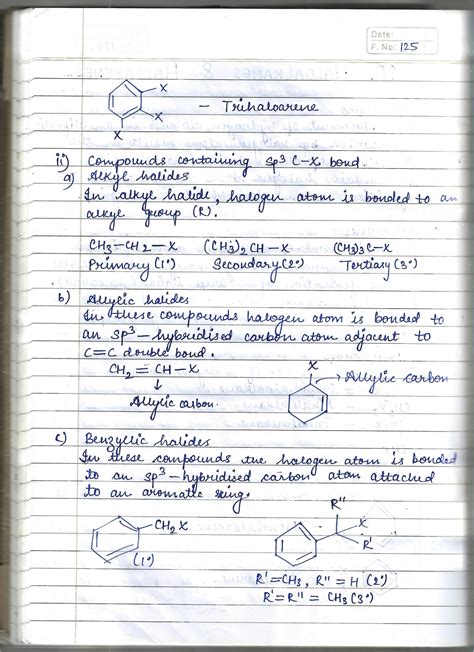 Date:
P. No: 125
X
X
X
— Trihaloarene
ii) Compounds containing sp³ C–X bond.
a) Alkyl halides
In alkyl halide, halogen atom is bonded to an
alkyl group (R).
CH₃–CH₂–X (CH₃)₂CH–X (CH₃)₃C–X
Primary (1°) Secondary (2°) Tertiary (3°)
b) Allylic halides
In these compounds halogen atom is bonded to
an sp³–hybridised carbon atom adjacent to
C=C double bond.
CH₂=CH–X
↓
Allylic carbon.
X
→ Allylic carbon
c) Benzyllic halides
In these compounds the halogen atom is bonded
to an sp³–hybridised carbon atom attached
to an aromatic ring.
CH₂X
(1°)
R"
X
R'
R'=CH₃, R" = H (2°)
R'=R" = CH₃ (3°)